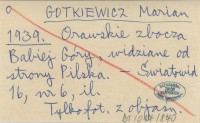 GOTKIEWICZ Marian
1939. Orawskie zbocza
Babiej Góry, widziane od
strony Pilska. – Światowid
16, nr 6, il.
Tylko fot. z objaśn.